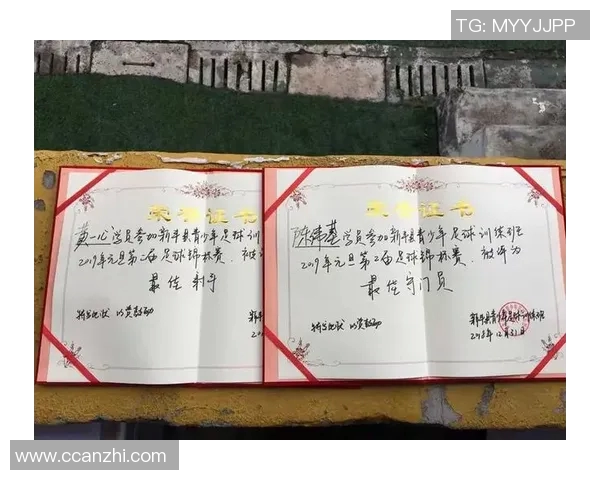 TG: MYYJJPP
荣誉证书
黄一心学员参加新平县青少年足球训
2019年元旦第二届足球锦标赛,被评
最佳射手
特发此状 以资鼓励
新平
201
荣誉证书
陈伟基学员参加新平县青少年足球训练班
2019年元旦第二届足球锦标赛,被评为
最佳守门员
特发此状 以资鼓励
新平县青少年足球训练班
2018年12月31日
www.ccanzhi.com